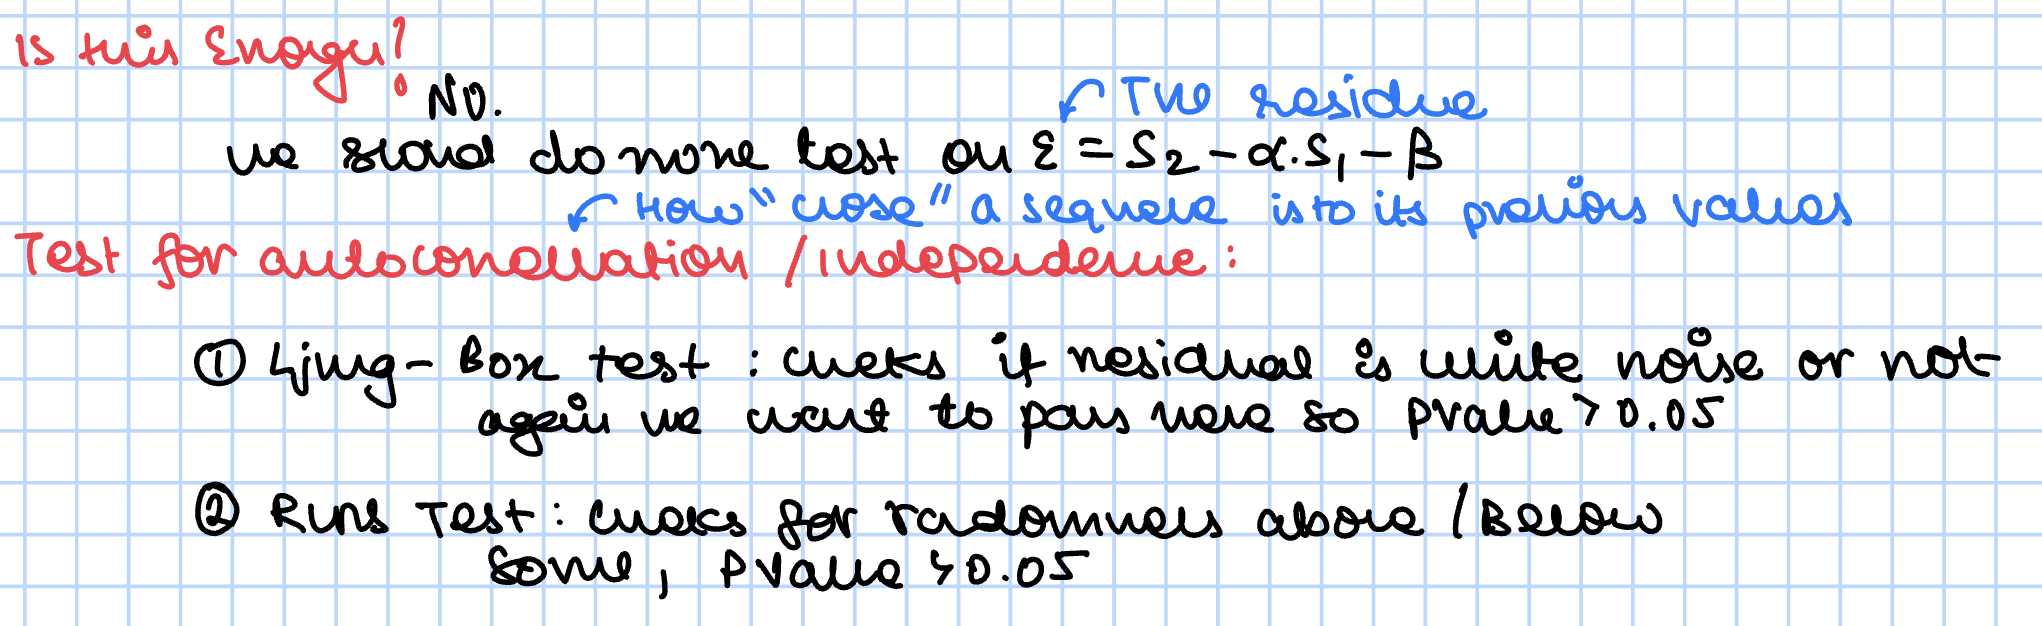 Is this Enough?
NO.
The residue
we should do more test on ε = S₂ - α.S₁ - β
How "close" a sequence is to its previous values
Test for autocorrelation / independence :
① Ljung-Box test : checks if residual is white noise or not
again we want to pass here so pvalue > 0.05
② Runs Test : checks for radomness above / Below
some, pvalue > 0.05